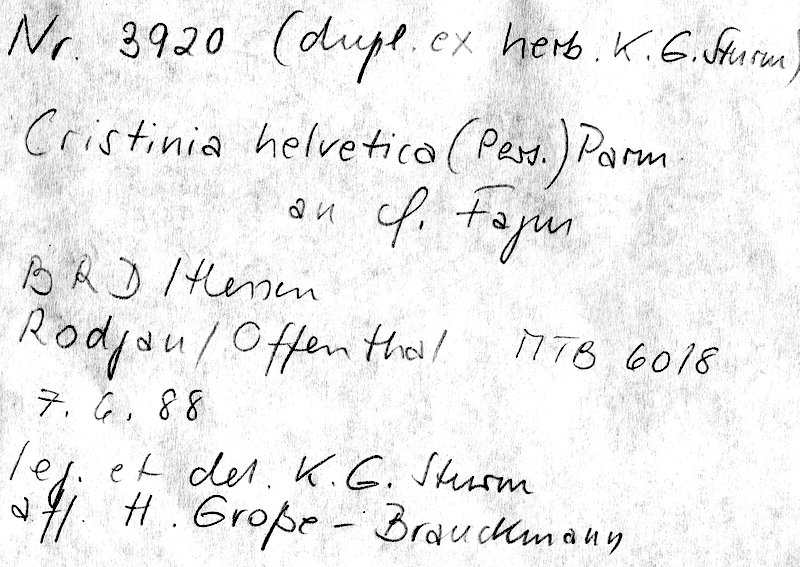 Nr. 3920 (dupl. ex herb. K. G. Sturm)
Cristinia helvetica (Pers.) Parm
an cf. Fagus
BRD / Hessen
Rodgau / Offenthal MTB 6018
7. 6. 88
leg. et det. K. G. Sturm
aff. H. Große-Brauckmann